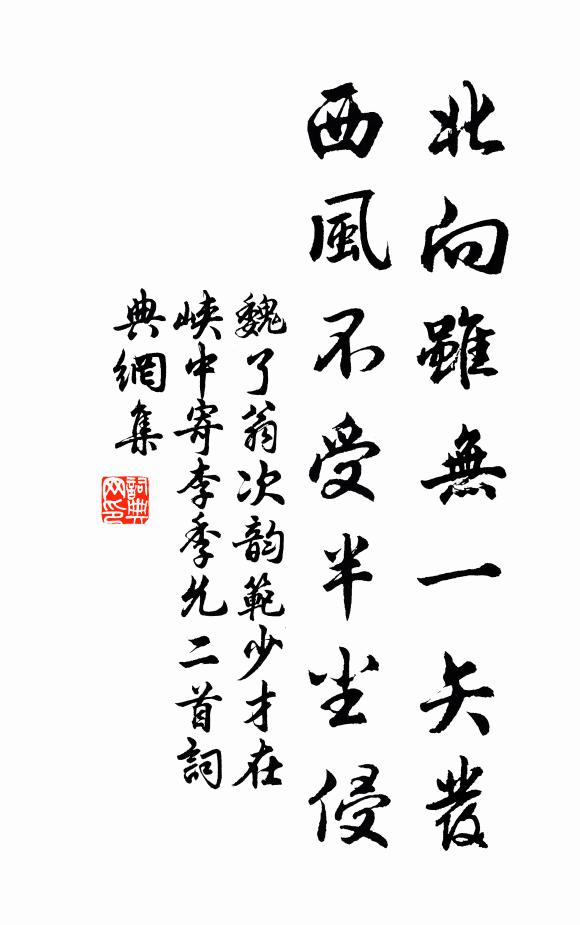 北向雖無一矢發
西風不受半尘侵
魏了翁次韵範少才在
峽中寄李季允二首詞
典網集
詞典
网印